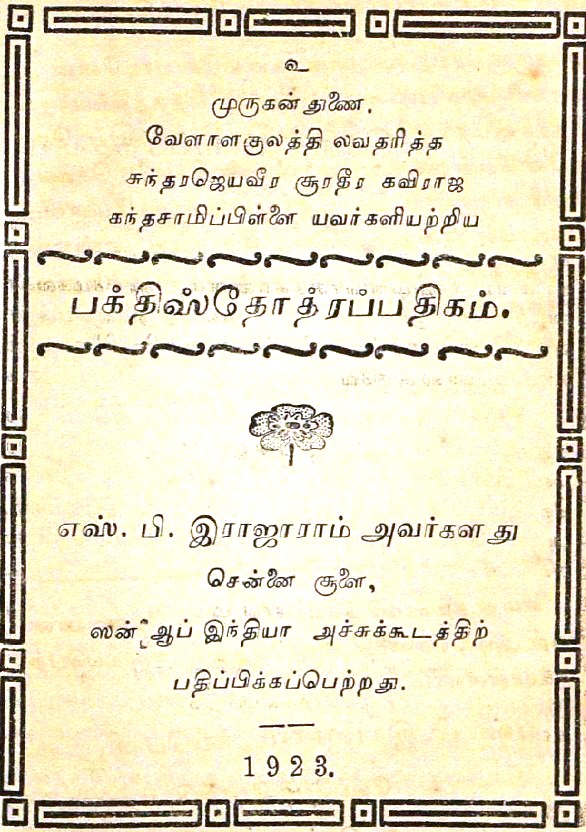 உ
முருகன் துணை.
வேளாளகுலத்தி லவதரித்த
சுந்தரஜெயவீர சூரதீர கவிராஜ
கந்தசாமிப்பிள்ளை யவர்களியற்றிய
பக்திஸ்தோத்ரப்பதிகம்.
எஸ். பி. இராஜாராம் அவர்களது
சென்னை சூளை,
ஸன் ஆப் இந்தியா அச்சுக்கூடத்திற்
பதிப்பிக்கப்பெற்றது.
1923.